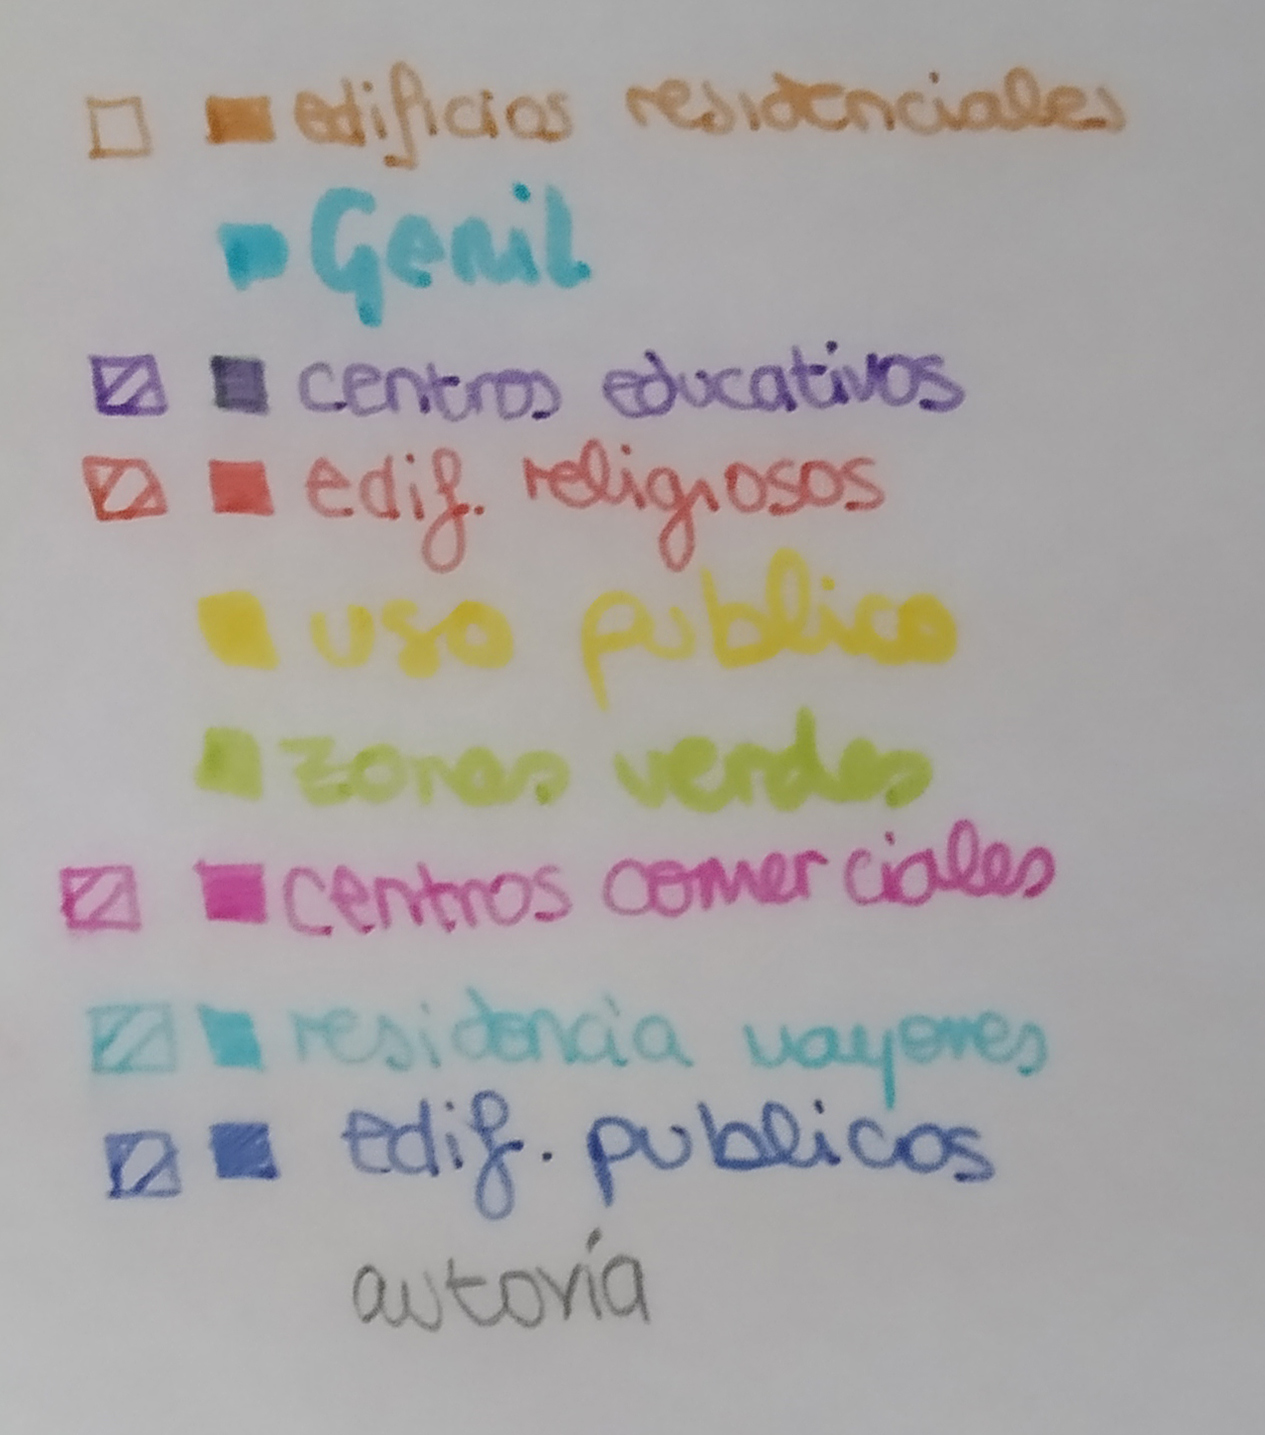 edificios residenciales
Genil
centros educativos
edif. religiosos
uso publico
zonas verdes
centros comerciales
residencia mayores
edif. publicos
autovía